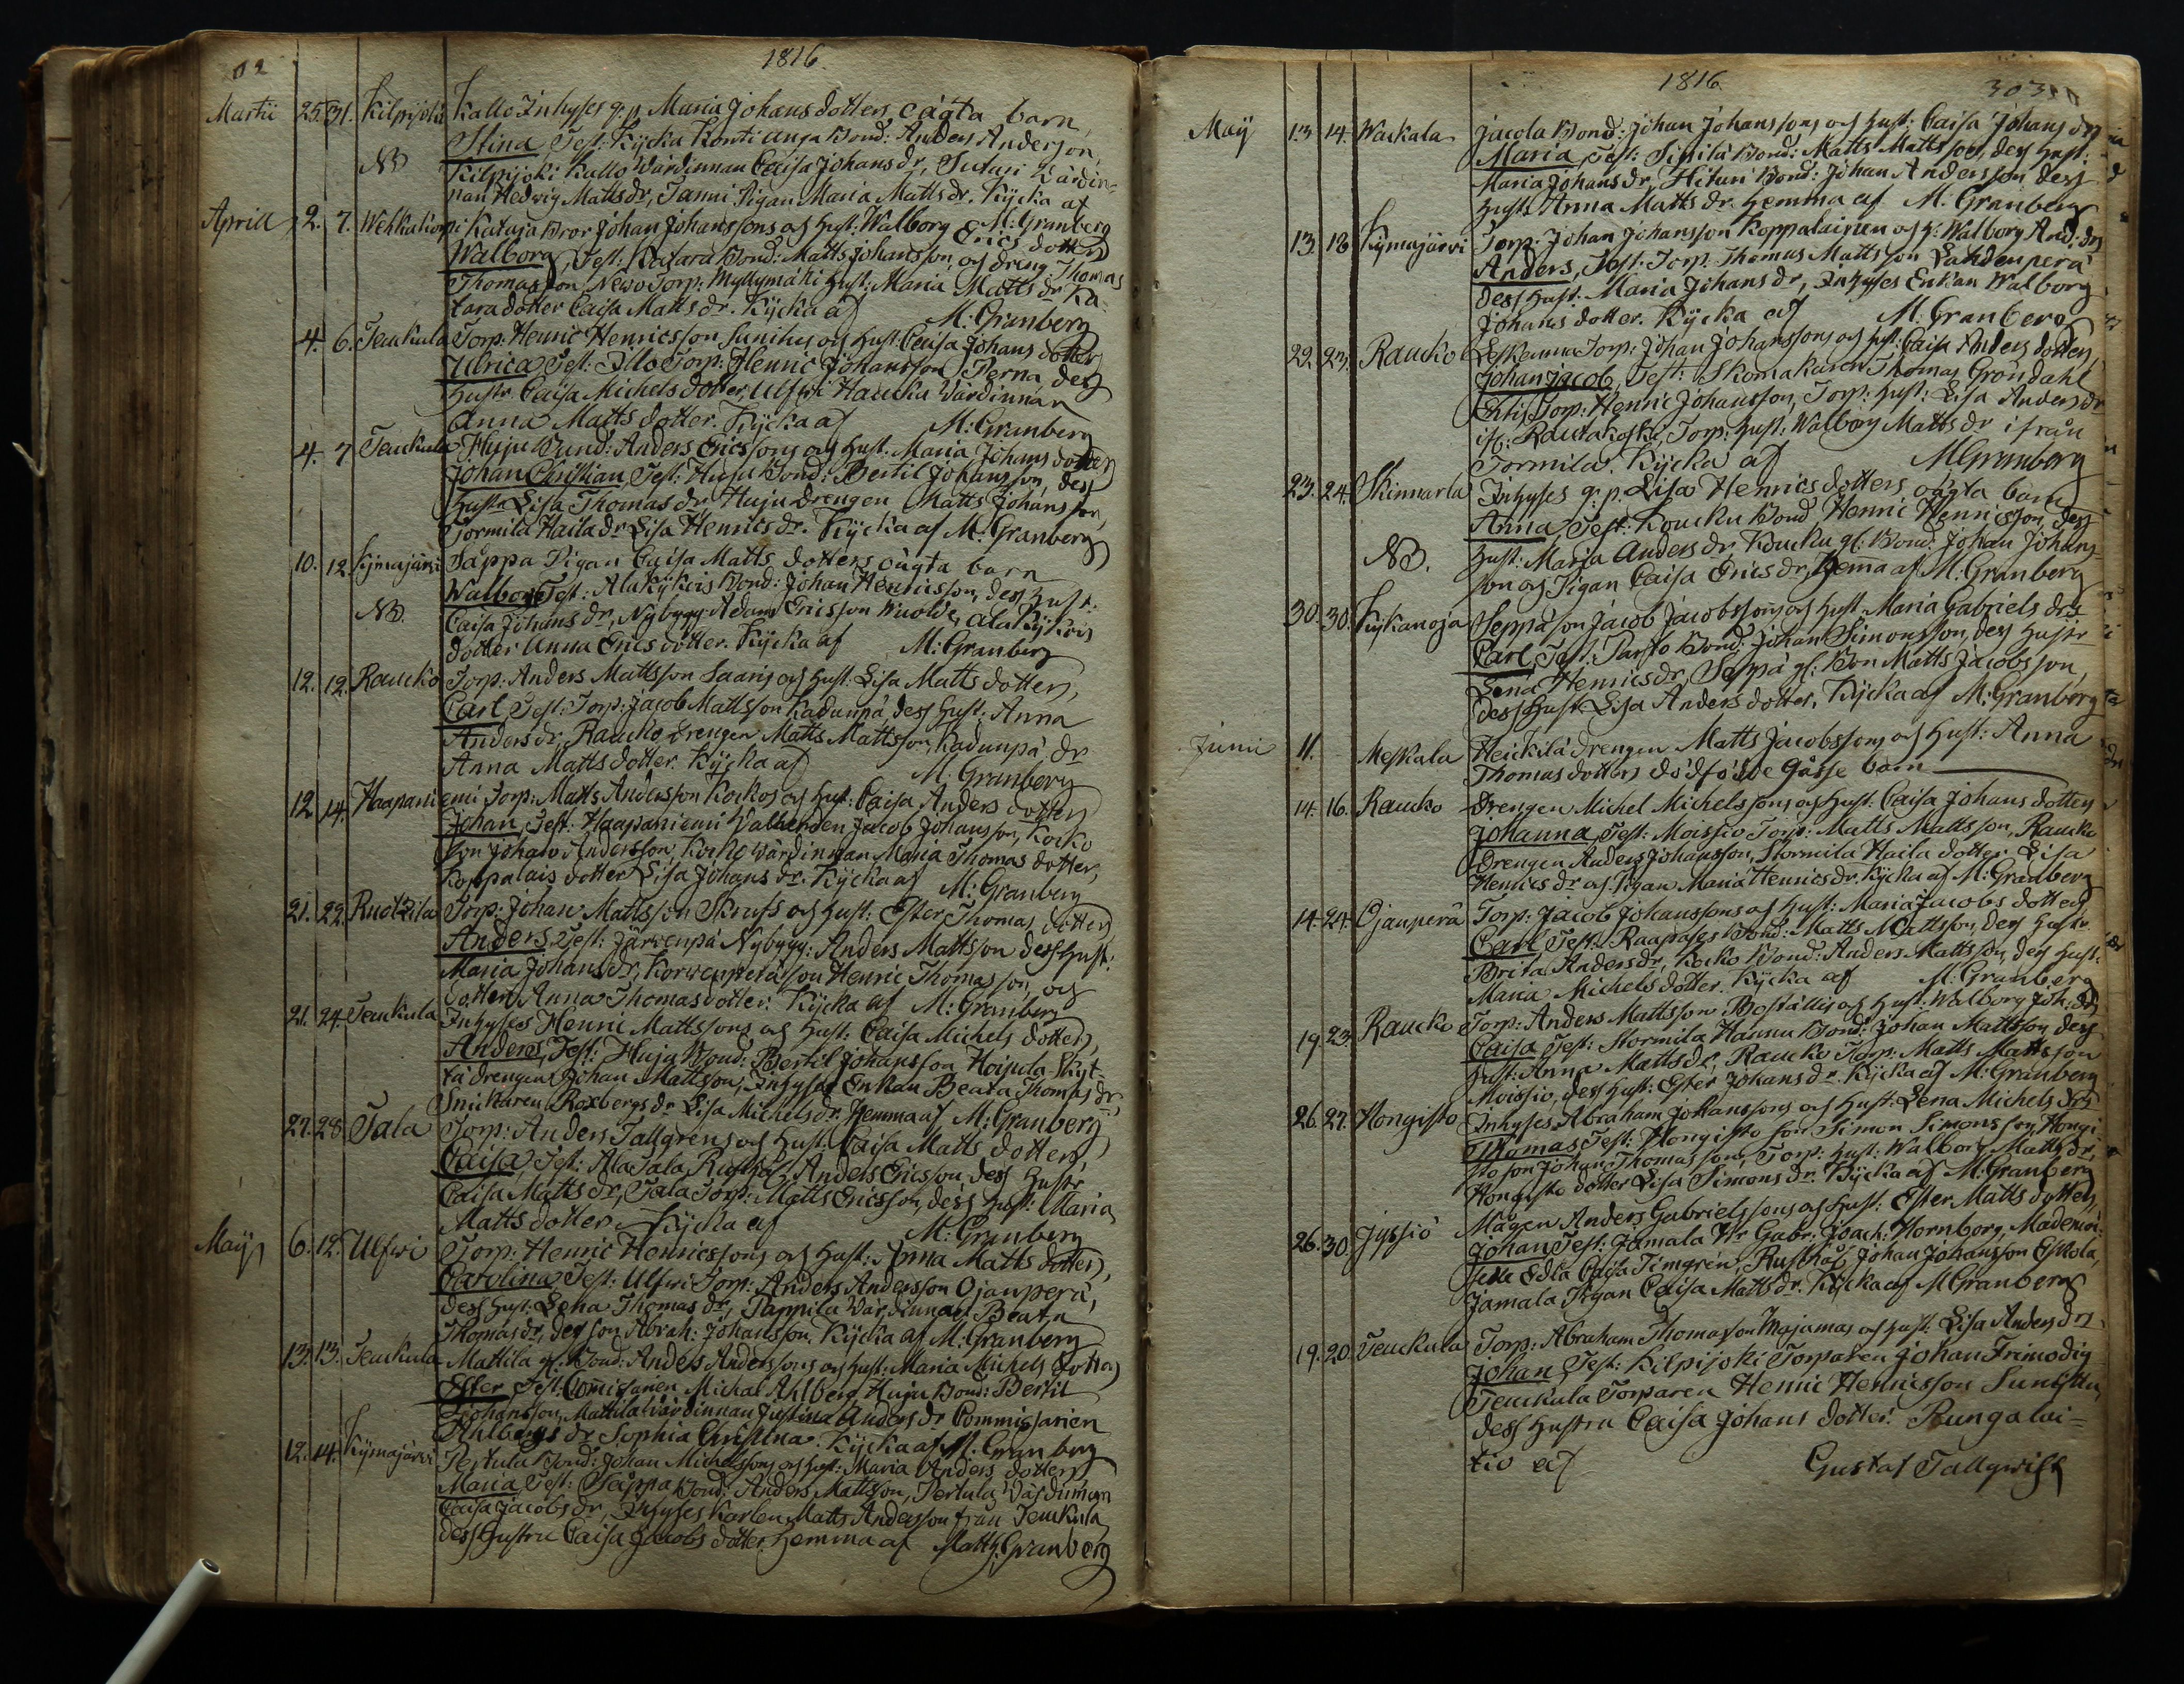 302
1816.
Martii 25. 31. Kilpijoki Kallo Inhyses q:p Maria Johans dotters oägta barn,
Stina, Test: Kycka Bond: Anders Anderson,
NB Kilpijoki Kallo Wärdinnan Caisa Johans dr, Wärdin-
nan Hedwig Matts dr, Tanni Pigan Maria Matts dr. Kycka af
M: Granberg
Aprill 2. 7. Wehkakorpi Kataja Bror Johan Johanssons og Hust: Walborg Erics dotters
Walborg, Test: Kagara Bond: Matts Johansson, og dreng: Thomas
Thomasson Newo Torp: Myllymäki Hust: Maria Matts dr Ka-
tara dotter Caisa Matts dr. Kycka af
M: Granberg
4. 6. Teuckula Torp: Henric Henricsson Sunihus og Hust: Caisa Johans dotters
Ulrica Test: Illo Torp: Henric Johansson Perna dess
Hustr Caisa Michels dotter, Ulfwi Haucka Wärdinnan
Anna Matts dotter. Kycka af M: Granberg
4. 7 Teuckula Huju Bond: Anders Ericssons og Hust: Maria Johans dotters
Johan Christian, Test: Huju Bond: Bertil Johansson, dess
Hustr Lisa Thomas dr Huju drengen Matts Johansson,
Tormila Haila dr Lisa Henrics dr. Kycka af M: Granberg
10. 12 Kymajärvi Säppä Pigan Caisa Matts dotters oägta barn
Walborg Test: Ala Kykeis Bond: Johan Henricsson, dess Hust:
NB. Caisa Johans dr, Nybygg: Adam Ericsson Wuolde, Ala Kykeis
dotter Anna Erics dotter. Kycka af M: Granberg
12. 12. Raucko Torp: Anders Mattsson Saaris og Hust: Lisa Matts dotters,
Carl, Test: Torp: Jacob Mattsson Kadunpä, dess Hust: Anna
Anders dr, Raucko drengen Matts Mattsson, Kadunpä dr
Anna Matts dotter. Kycka af
M: Granberg
12 14. Haapaniemi Torp: Matts Andersson Kockos og Hust: Caisa Anders dotters
Johan, Test: Haapaniemi Johansson, Kocko
Son Johan Andersson, Kocko wärdinnan Maria Thomas dotter,
Koppalais dotter Lisa Johans dr. Kycka af M: Granberg
21. 22. Ruotzila Torp: Johan Mattsson Skrufs og Hust: Ester Thomas dotters
Anders, Test: Järvenpä Nybygg: Anders Mattsson dess Hust:
Maria Johans dr, Korwenperä son Henric Thomasson, og
dotter Anna Thomas dotter. Kycka af M: Granberg
21. 24. Teuckula Inhyses Henric Mattssons og Hust: Caisa Michels dotters,
Anders, Test: Huju Bond: Bertil Johansson Hoijula Skyt-
tä drengen Johan Mattsson, Inhyses Enkan Beata Thomas dr,
Snickaren Roxbergs dr Lisa Michels dr. Hemma af M: Granberg
27. 28. Tala Torp: Anders Tallgrens og Hust: Caisa Matts dotters
Caisa, Test: Ala Tala Rusth: Anders Ericsson, dess Hustr
Caisa Matts dr, Tala Torp: Matts Ericsson, dess Hust: Maria
Matts dotter. Kycka af M: Granberg
Maij 6. 12. Ulfwi Torp: Henric Henricssons og Hust: Anna Matts dotters,
Carolina Test: Ulfwi Torp: Anders Andersson Ojanperä,
dess Hust: Lena Thomas dr, Pappila Wärdinnan Beata
Thomas dr, dess son Abrah: Johansson. Kycka af M: Granberg
13. 13. Teuckula Mattila gl: Bond: Anders Anderssons og Hust: Maria Michels dotters
Ester Test: Comissarien Michal Ahlberg, Huju Bond: Bertil
Johansson, Mattila wärdinnan Justina Anders dr Commissarien
Ahlbergs dr Sophia Christina. Kycka af M: Granberg
12. 14. Kymajärvi Pertula Bond: Johan Michelssons og Hust: Maria Anders dotters
Maria, Test: Säppä Bond: Anders Mattsson, Pertula Wärdinnan
Caisa Jacobs dr, Inhyses Karlen Matts Andersson från Teuckula
dess Hustru Caisa Jacobs dotter, hemma af Matth: Granberg
1816.
303
Maij 13. 14. Wackala Jacola Bond: Johan Johanssons og Hust: Caisa Johans drs
Maria, Test: Sipilä Bond: Matts Mattsson, dess Hust:
Maria Johans dr, Hituri Bond: Johan Andersson dess
Hust: Anna Matts dr. Hemma af M. Granberg
13. 18 Kymajärwi Torp: Johan Johansson Koppalainen og H: Walborg And: drs
Anders, Test: Torp: Thomas Mattsson Lahdenperä
dess Hust: Maria Johans dr, Inhyses Enkan Walborg
Johans dotter. Kycka af M. Granberg
22. 23. Raucko Leskenma Torp: Johan Johanssons og Hust: Caisa Anders dotters
Johan Jacob, Test: Skomakaren Thomas Gröndahl
Torp: Henric Johansson, Torp: Hust: Lisa Anders dr
Rautakoski, Torp: Hust: Walborg Matts dr ifrån
Tormila. Kycka af M Granberg
23. 24. Skinnarla Inhyses q:p. Lisa Henrics dotters oägta barn
Anna, Test: Koucku Bond Henric Henricsson, dess
NB. Hust: Maria Anders dr, Koucku gl: Bond: Johan Johans-
son og Pigan Caisa Erics dr, Hema af M. Granberg
30. 30. Kykanoja Seppä son Jacob Jacobssons og Hust Maria Gabriels drs
Carl, Test: Parsto Bond: Johan Simonsson, dess Hustr
Lena Henrics dr, Seppä gl: Bon Matts Jacobsson,
dess Hust: Lisa Anders dotter. Kycka af M: Granberg
Junii 11. Meskala Heickilä drengen Matts Jacobssons og Hust: Anna
Thomas dotters dödfödde Gosse barn
14. 16. Raucko Drengen Michel Michelssons og Hust: Caisa Johans dotters
Johanna, Test: Moissio Torp: Matts Mattsson, Raucko
Drengen Anders Johansson, Stormila Haila dotter Lisa
Henrics dr og Pigan Maria Henrics dr. Kycka af M: Granberg
14. 24. Ojanperä Torp: Jacob Johanssons og Hust: Maria Jacobs dotters
Carl Test: Raapases Bond: Matts Mattsson, dess Hustr
Brita Anders dr, Kocko Bond: Anders Mattsson, dess Hust:
Maria Michels dotter. Kycka af M: Granberg
19. 23. Raucko Torp: Anders Mattsson Boställis og Hust: Walborg Joh: drs
Caisa Test: Stormila Hannu Bond: Johan Mattsson dess
Hust: Anna Matts dr, Raucko Torp: Matts Mattsson
Moissio, dess Hust: Ester Johans dr. Kycka af M: Granberg
26. 27. Hongisto Inhyses Abraham Johanssons og Hust: Lena Michels drs
Thomas Test: Hongisto son Simon Simonsson, Hongi-
sto son Johan Thomasson, Torp: Hust: Walborg Matts dr,
Hongisto dotter Lisa Simons dr. Kycka af M: Granberg
26. 30 Jyssiö Mågen Anders Gabrielssons og Hust: Ester Matts dotters,
Johan Test: Jamala Hr Gabr: Joach: Hornborg, Mademoi-
selle Edla Caisa Timgrén, Rusth: Johan Johansson Eskola,
Jamala Pigan Caisa Matts dr. Kycka af M Granberg
19. 20. Teuckula Torp: Abraham Thomasson Majamas og Hust: Lisa Anders drs
Johan, Test: Kilpijoki Torparen Johan Frimodig
Teuckula Torparen Henric Henricsson Sunisttu,
dess Hustru Caisa Johans dotter. Pungalai-
tio af Gustaf Tallqwist